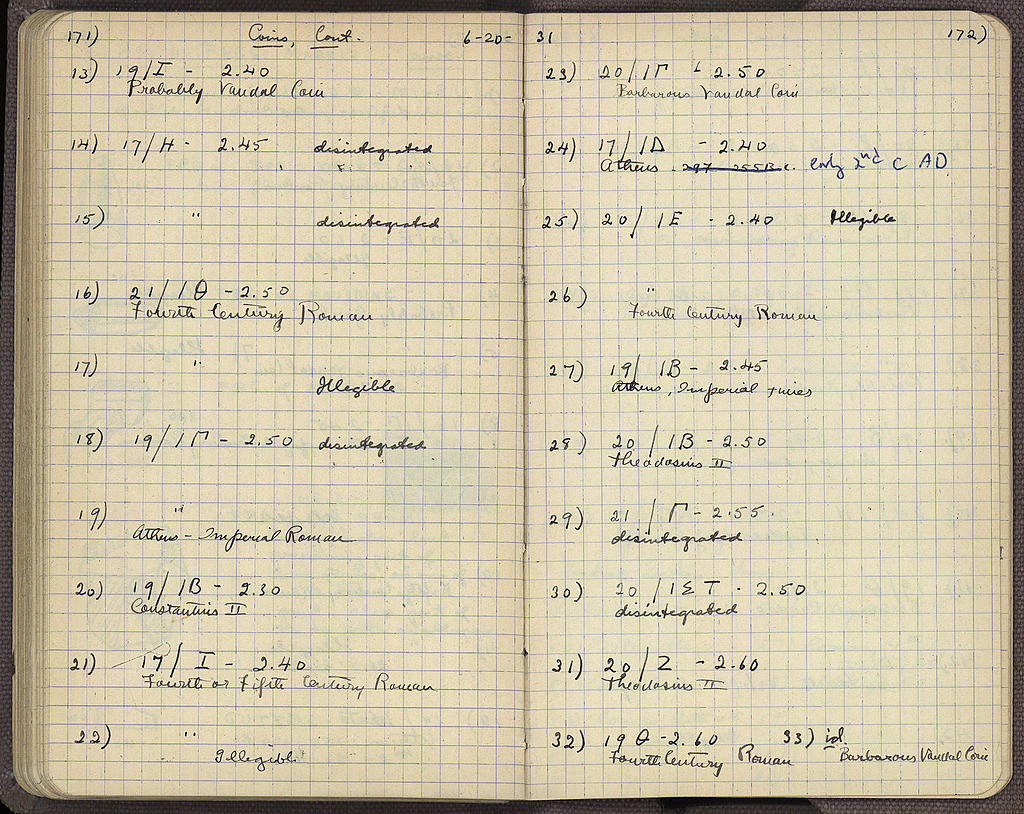 171) Coins, Cont. 6-20-
13) 19/I - 2.40
Probably Vandal Coin
14) 17/H - 2.45 disintegrated
15) " disintegrated
16) 21/ΙΘ - 2.50
Fourth Century Roman
17) "
Illegible
18) 19/ΙΓ - 2.50 disintegrated
19) "
Athens - Imperial Roman
20) 19/ΙΒ - 2.30
Constantius II
21) 17/I - 2.40
Fourth or Fifth Century Roman
22) "
Illegible
31 172)
23) 20/ΙΓ - 2.50
Barbarous Vandal Coin
24) 17/ΙΔ - 2.40
Athens early 2nd C AD
25) 20/ΙΕ - 2.40 Illegible
26) "
Fourth Century Roman
27) 19/ΙΒ - 2.45
Athens, Imperial times
28) 20/ΙΒ - 2.50
Theodosius II
29) 21/Γ - 2.55.
disintegrated
30) 20/ΙΣΤ - 2.50
disintegrated
31) 20/Ζ - 2.60
Theodosius II
32) 19 Θ - 2.60 33) id.
Fourth Century Roman Barbarous Vandal Coin